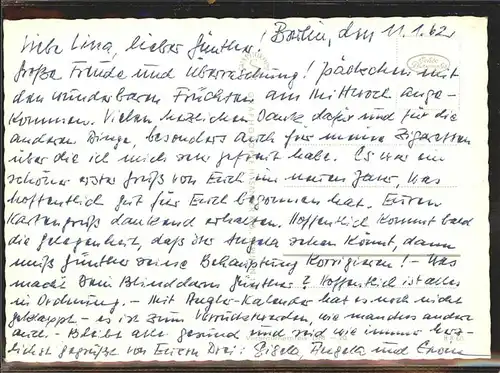 Berlin, den 11.1.62.
Liebe Lina, lieber Günther!
Große Freude und Überraschung! Päckchen mit
den wunderbaren Früchten am Mittwoch ange-
kommen. Vielen herzlichen Dank dafür und für die
anderen Dinge, besonders auch für meine Zigaretten
über die ich mich sehr gefreut habe. Es war ein
schöner erster Gruß von Euch im neuen Jahr, das
hoffentlich gut für Euch begonnen hat. Euren
Kartengruß dankend erhalten. Hoffentlich kommt bald
die Gelegenheit, daß Ihr Angela sehen könnt, dann
muß Günther seine Behauptung korrigieren! - Was
macht Dein Blinddarm Günther? Hoffentlich ist alles
in Ordnung. - Mit Angler-Kalender hat es noch nicht
geklappt - es ist zum Verrücktwerden, wie manches andere
auch. - Bleibt alle gesund und seid wie immer herz-
lichst gegrüßt von Euren Drei: Gisela, Angela und